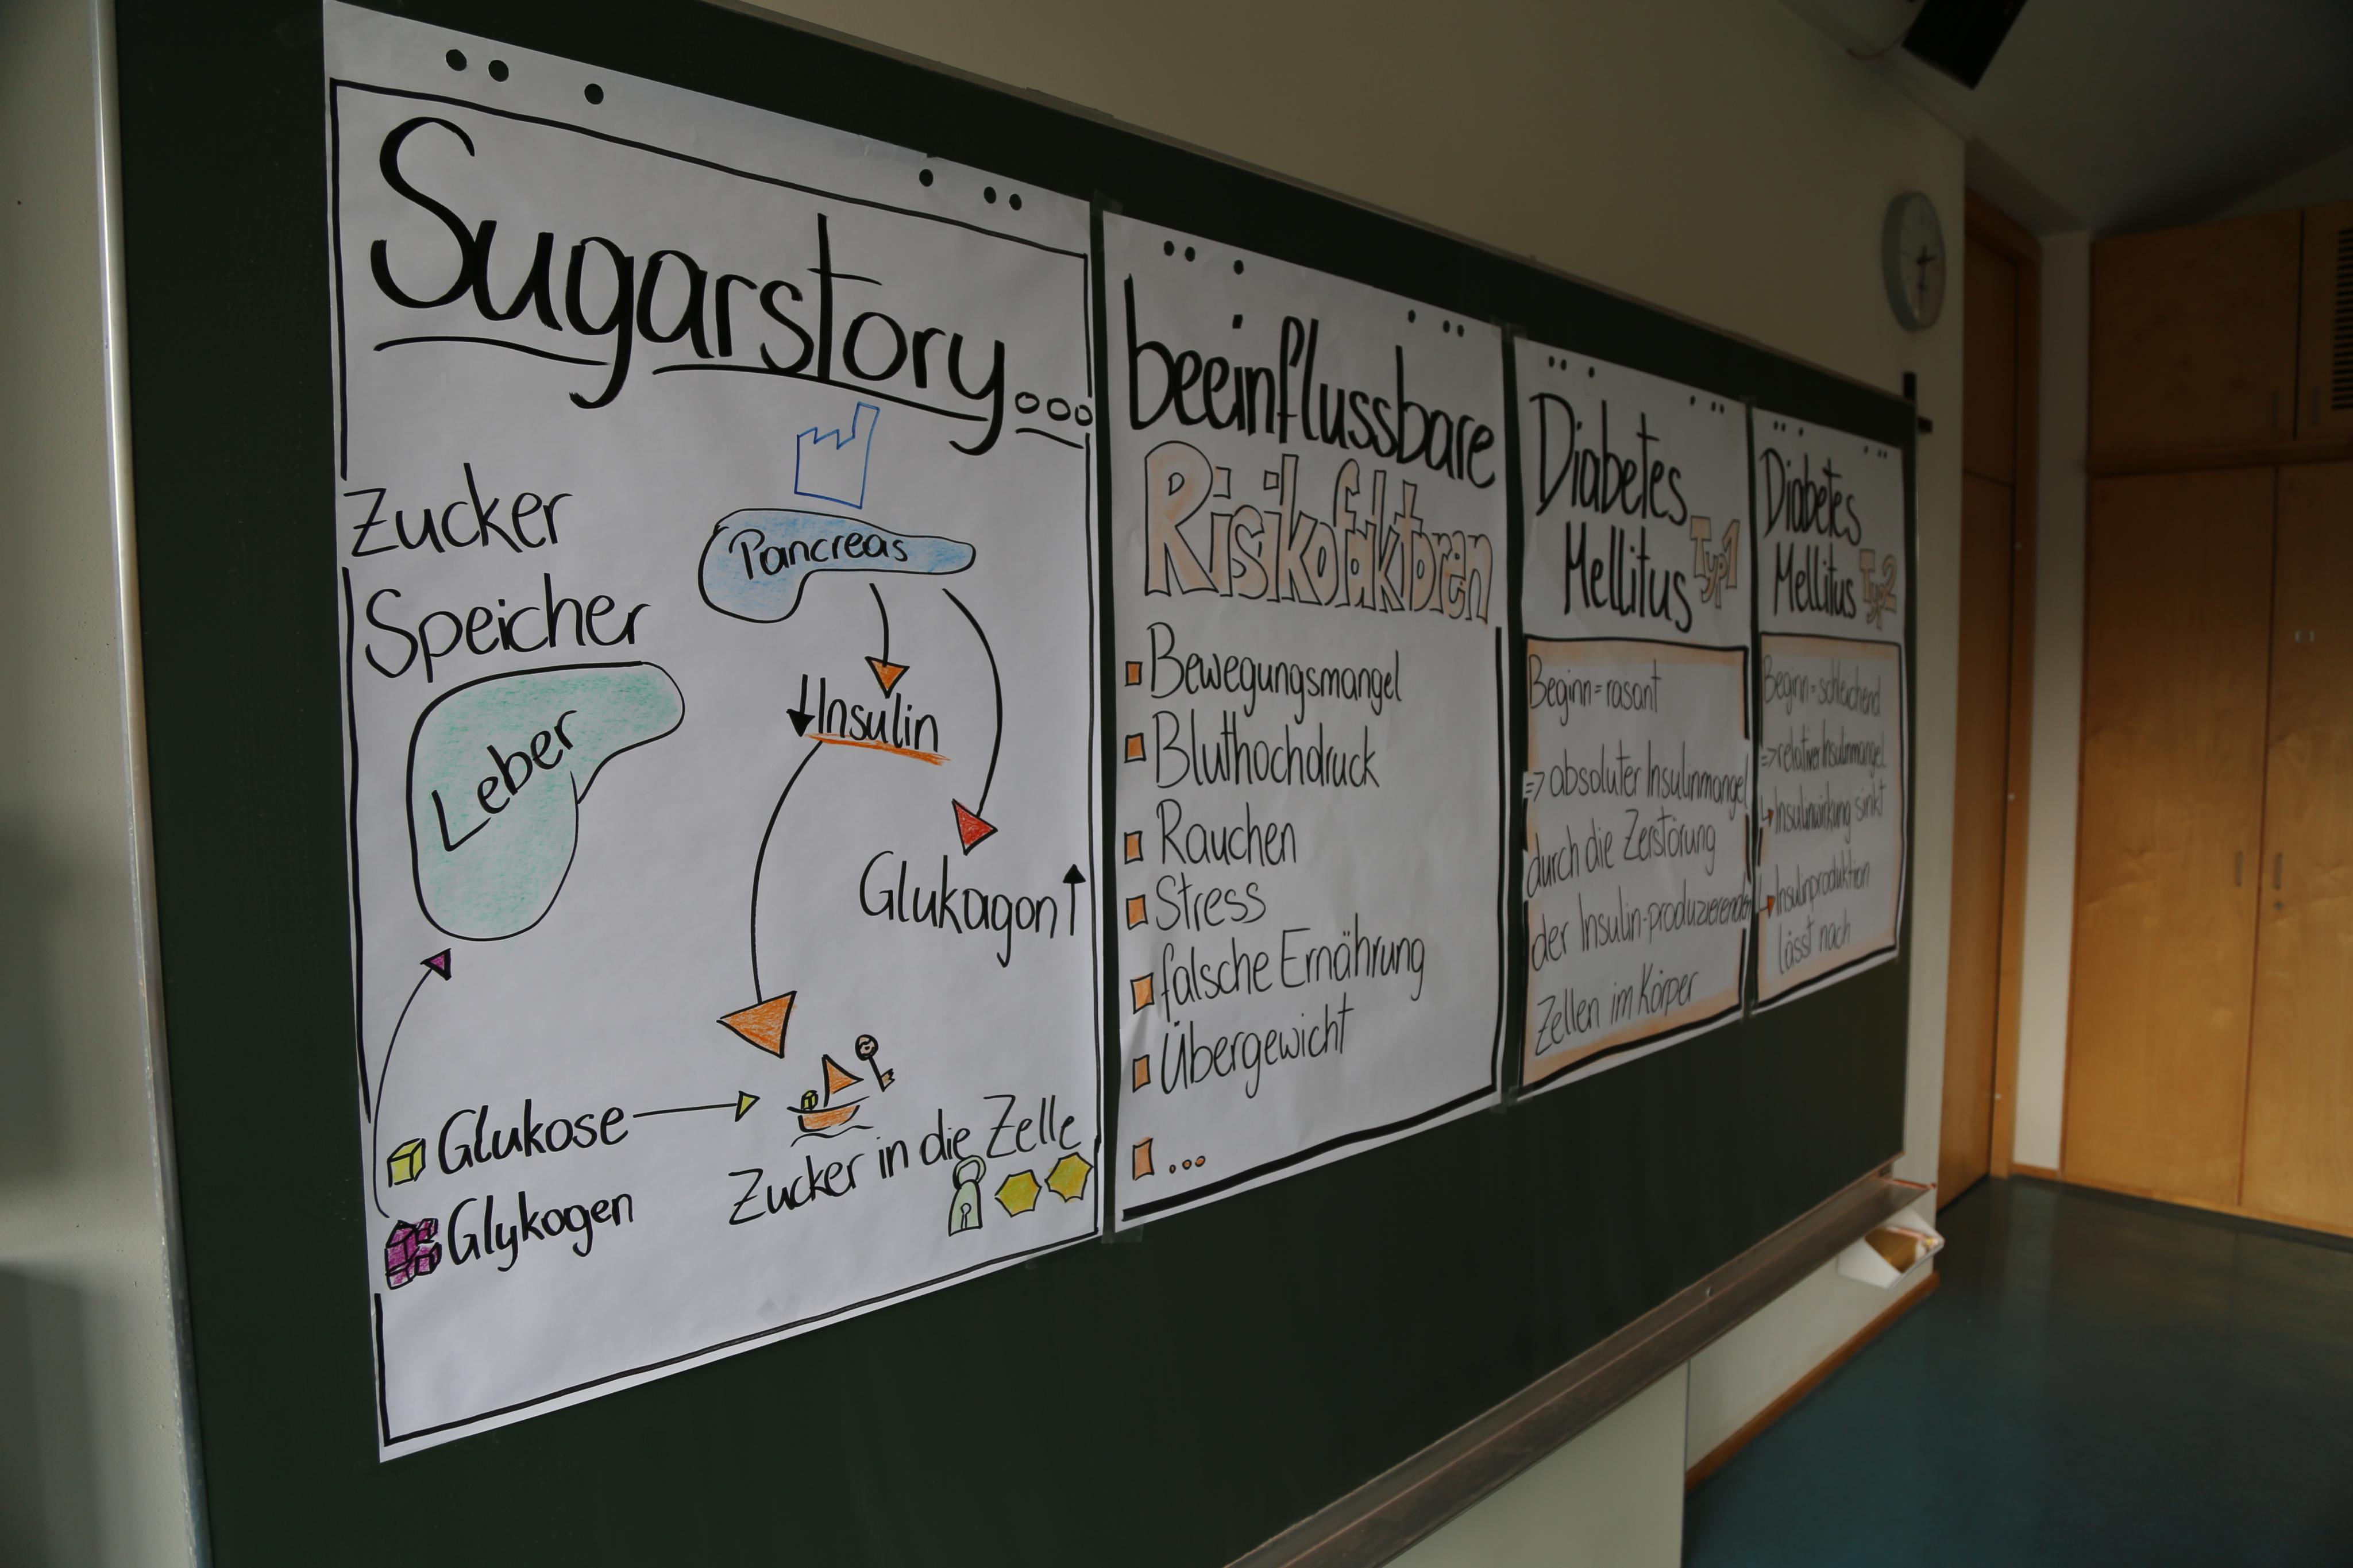 Sugarstory...
Zucker
Speicher
Leber
Pancreas
↓Insulin
Glukagon↑
Glukose
Glykogen
Zucker in die Zelle
beeinflussbare
Risikofaktoren
Bewegungsmangel
Bluthochdruck
Rauchen
Stress
falsche Ernährung
Übergewicht
...
Diabetes
Mellitus Typ1
Beginn=rasant
=> absoluter Insulinmangel
durch die Zerstörung
der Insulin-produzierenden
Zellen im Körper
Diabetes
Mellitus Typ2
Beginn=schleichend
=> relativer Insulinmangel
↳ Insulinwirkung sinkt
↳ Insulinproduktion
lässt nach